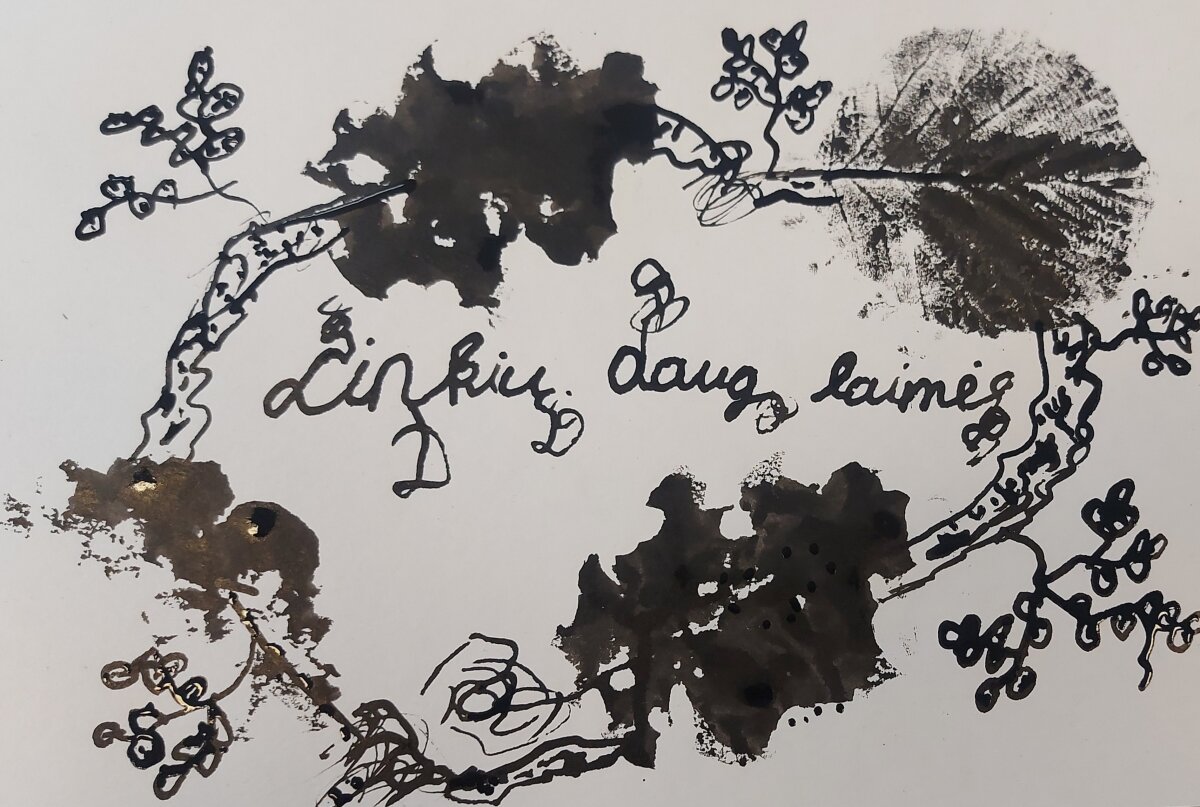 Linkiu daug laimės